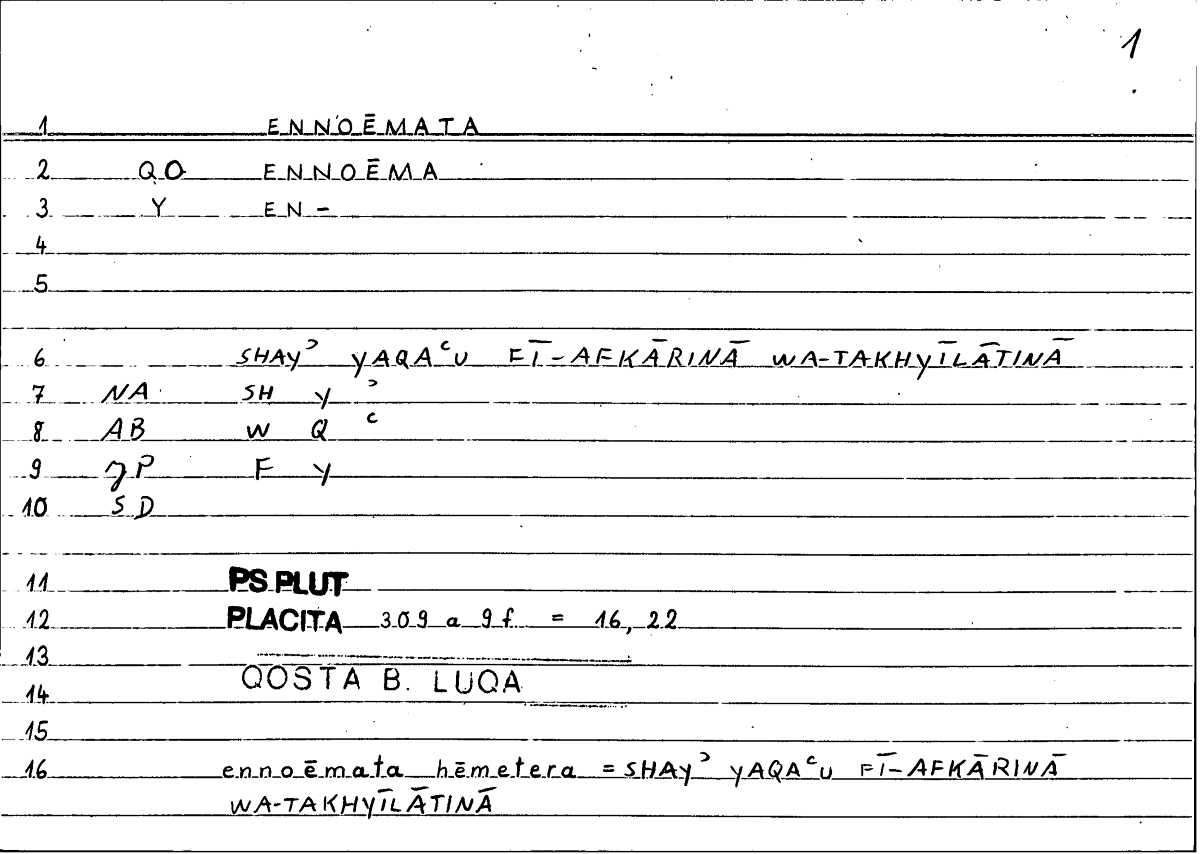 1
1 ENNOĒMATA
2 QO ENNOĒMA
3 Y EN-
4
5
6 SHAYʾ YAQAʿU FĪ-AFKĀRINĀ WA-TAKHYĪLĀTINĀ
7 NA SH Y ʾ
8 AB W Q ʿ
9 JP F Y
10 SD
11 PS PLUT
12 PLACITA 309 a 9f = 16, 22
13
14 QOSTA B. LUQA
15
16 ennoēmata hēmetera = SHAYʾ YAQAʿU FĪ-AFKĀRINĀ
WA-TAKHYĪLĀTINĀ